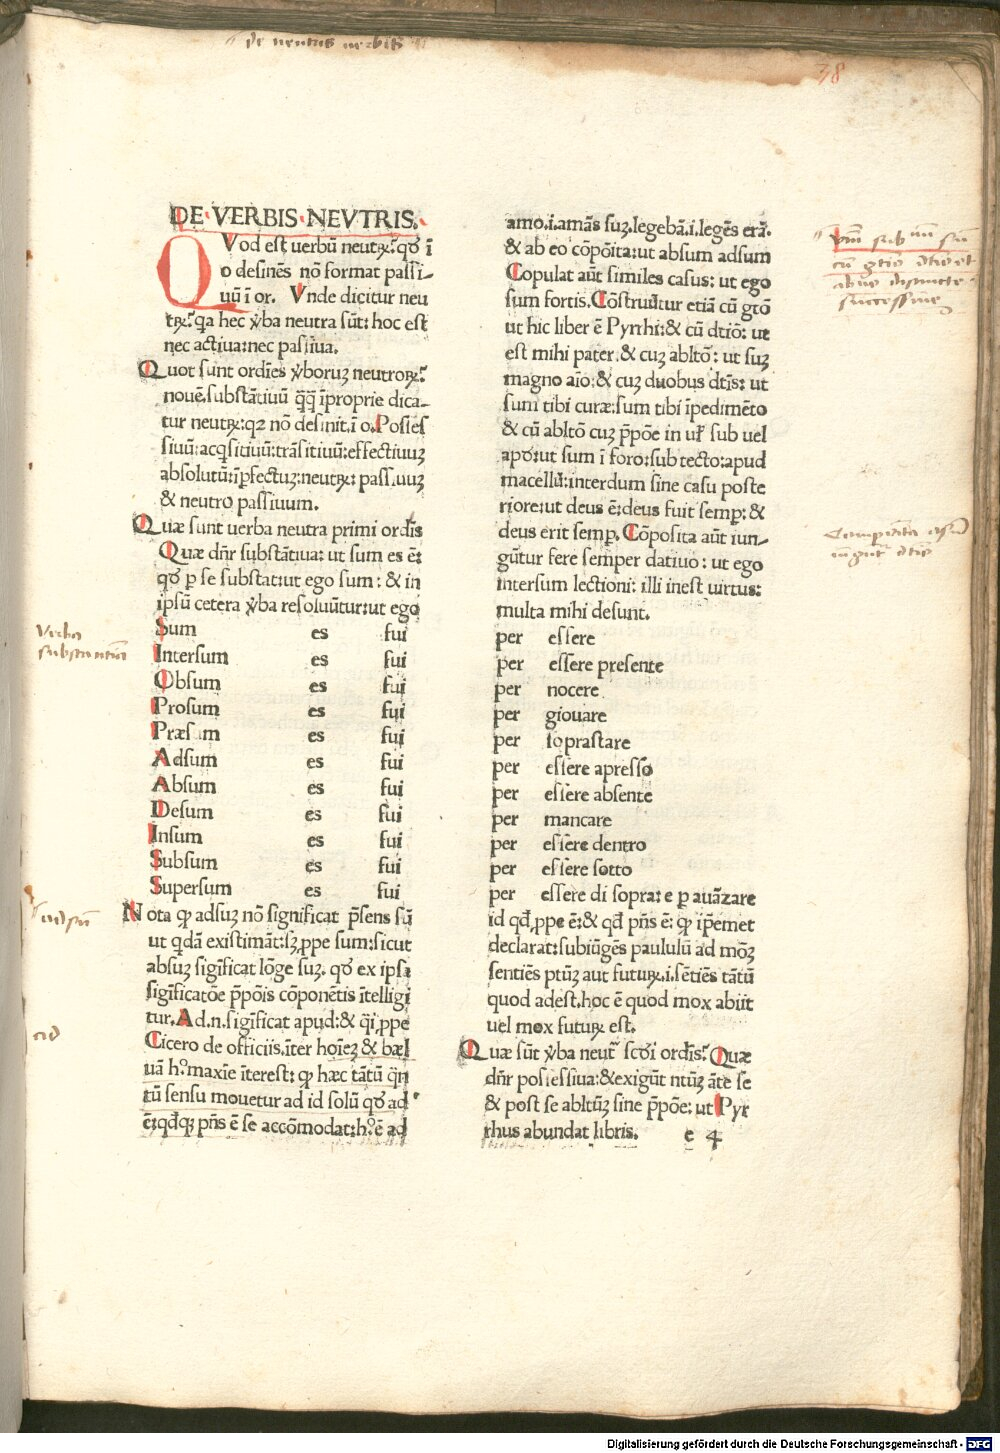 de neutris verbis
38
DE VERBIS NEVTRIS.
QVod est uerbū neutꝝ? qđ ī
o desinēs nō format passi-
uū ī or. Vnde dicitur neu
tꝝ? qa hec v̄ba neutra sūt: hoc est
nec actiua: nec passiua.
Quot sunt ordīes v̄boruꝫ neutroꝝ?
nouē. substātiuū q̄q̄ īproprie dica-
tur neutꝝ: q2 nō desinit ī o. Posses
siuū: acq̄sitiuū: trāsitiuū: effectiuuꝫ
absolutū: īp̄fectuꝫ: neutꝝ: passiuuꝫ
& neutro passiuum.
Quæ sunt uerba neutra primi ordīs
Quæ dn̄r substātiua: ut sum es ē:
qđ ꝑ se substat: ut ego sum: & in
ipsū cetera v̄ba resoluūtur: ut ego
Sum es fui
Intersum es fui
Obsum es fui
Prosum es fui
Præsum es fui
Adsum es fui
Absum es fui
Desum es fui
Insum es fui
Subsum es fui
Supersum es fui
Nota ꝙ adsuꝫ nō significat p̄sens sū
ut qdā existimāt: sꝫ ꝓpe sum: sicut
absuꝫ sigīficat lōge suꝫ. qđ ex ipsa
sigīficatōe p̄pōis cōponētis ītelligi
tur. Ad.n. sigīficat apud: & qi ꝓpe
Cicero de officiis. īter hoīeꝫ & bæl
uā hº maxīe īterest: ꝙ hæc tātū q̄n
tū sensu mouetur ad id solū qđ ad
ē: qđqꝫ pn̄s ē se accōmodat: hº ē ad
amo.i.amās suꝫ. legebā.i.legēs erā.
& ab eo cōpōita: ut absum adsum
Copulat aūt similes casus: ut ego
sum fortis. Cōstruūtur etiā cū gtō
ut hic liber ē Pyrrhi: & cū dtiō: ut
est mihi pater. & cuꝫ abltō: ut suꝫ
magno aīo: & cuꝫ duobus dtīs: ut
sum tibi curæ: sum tibi īpedimēto
& cū abltō cuꝫ p̄pōe in ul̄ sub uel
apđ: ut sum ī foro: sub tecto: apud
macellū: interdum sine casu poste
riore: ut deus ē: deus fuit semꝑ: &
deus erit semꝑ. Cōposita aūt iun-
gūtur fere semper datiuo: ut ego
intersum lectioni: illi inest uirtus:
multa mihi desunt.
per essere
per essere presente
per nocere
per giouare
per soprastare
per essere apresso
per essere absente
per mancare
per essere dentro
per essere sotto
per essere di sopra: e ꝑ auāzare
id qđ ꝓpe ē: & qđ pn̄s ē: ꝙ ip̄emet
declarat: subiūgēs paululū ad mōꝫ
sentiēs ptūꝫ aut futuꝝ.i.sētiēs tātū
quod adest. hoc ē quod mox abiit
uel mox futuꝝ est.
Quæ sūt v̄ba neut̄ scđi ordīs? Quæ
dn̄r possessiua: & exigūt ntūꝫ āte se
& post se abltūꝫ sine p̄pōe: ut Pyr
rhus abundat libris. e 4
Verba
substantiva
adsū
ad
Composita